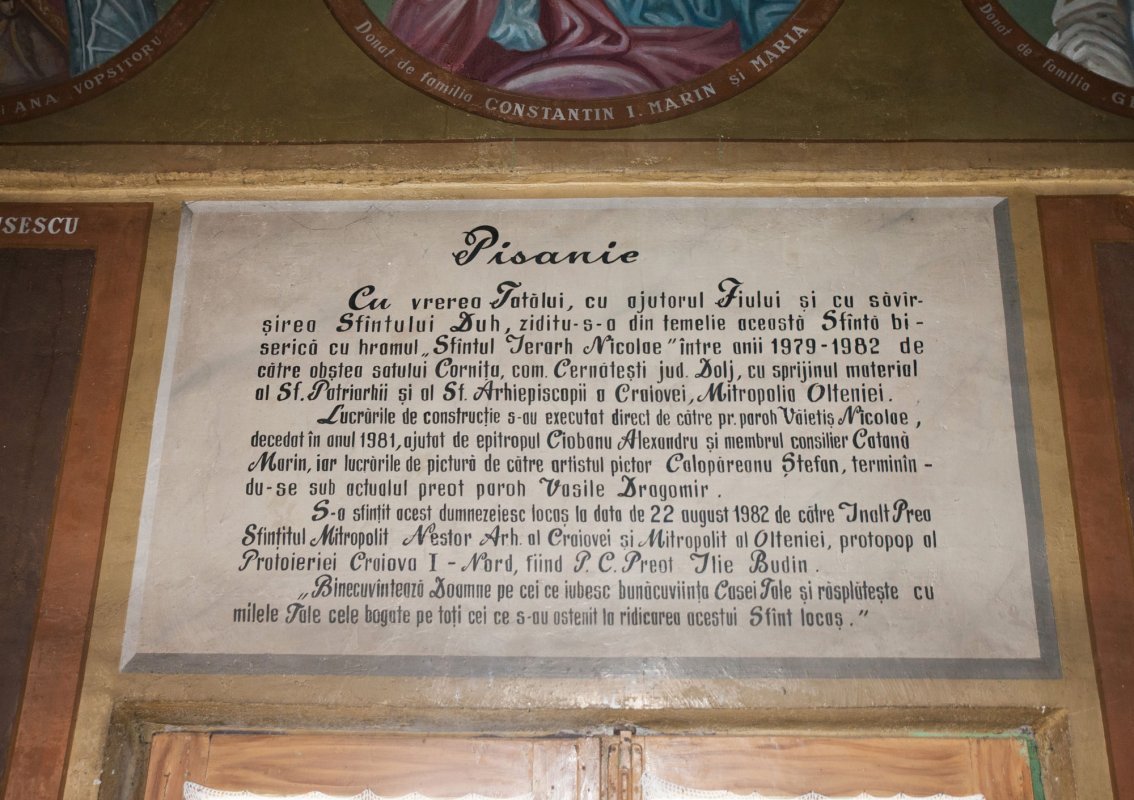 ȘI ANA VOPSITORU
Donat de familia CONSTANTIN I. MARIN ȘI MARIA
Donat de familia
Pisanie
Cu vrerea Tatălui, cu ajutorul Fiului și cu săvîr-
șirea Sfîntului Duh, ziditu-s-a din temelie această Sfîntă bi-
serică cu hramul „Sfîntul Ierarh Nicolae” între anii 1979-1982 de
către obștea satului Cornița, com. Cernătești jud. Dolj, cu sprijinul material
al Sf. Patriarhii și al Sf. Arhiepiscopii a Craiovei, Mitropolia Olteniei.
Lucrările de construcție s-au executat direct de către pr. paroh Văietiș Nicolae,
decedat în anul 1981, ajutat de epitropul Ciobanu Alexandru și membrul consilier Catană
Marin, iar lucrările de pictură de către artistul pictor Calopăreanu Ștefan, terminîn-
du-se sub actualul preot paroh Vasile Dragomir.
S-a sfințit acest dumnezeiesc locaș la data de 22 august 1982 de către Inalt Prea
Sfințitul Mitropolit Nestor Arh. al Craiovei și Mitropolit al Olteniei, protopop al
Protoieriei Craiova I - Nord, fiind P. C. Preot Ilie Budin.
„Binecuvintează Doamne pe cei ce iubesc bunăcuviința Casei Tale și răsplătește cu
milele Tale cele bogate pe toți cei ce s-au ostenit la ridicarea acestui Sfînt locaș.”